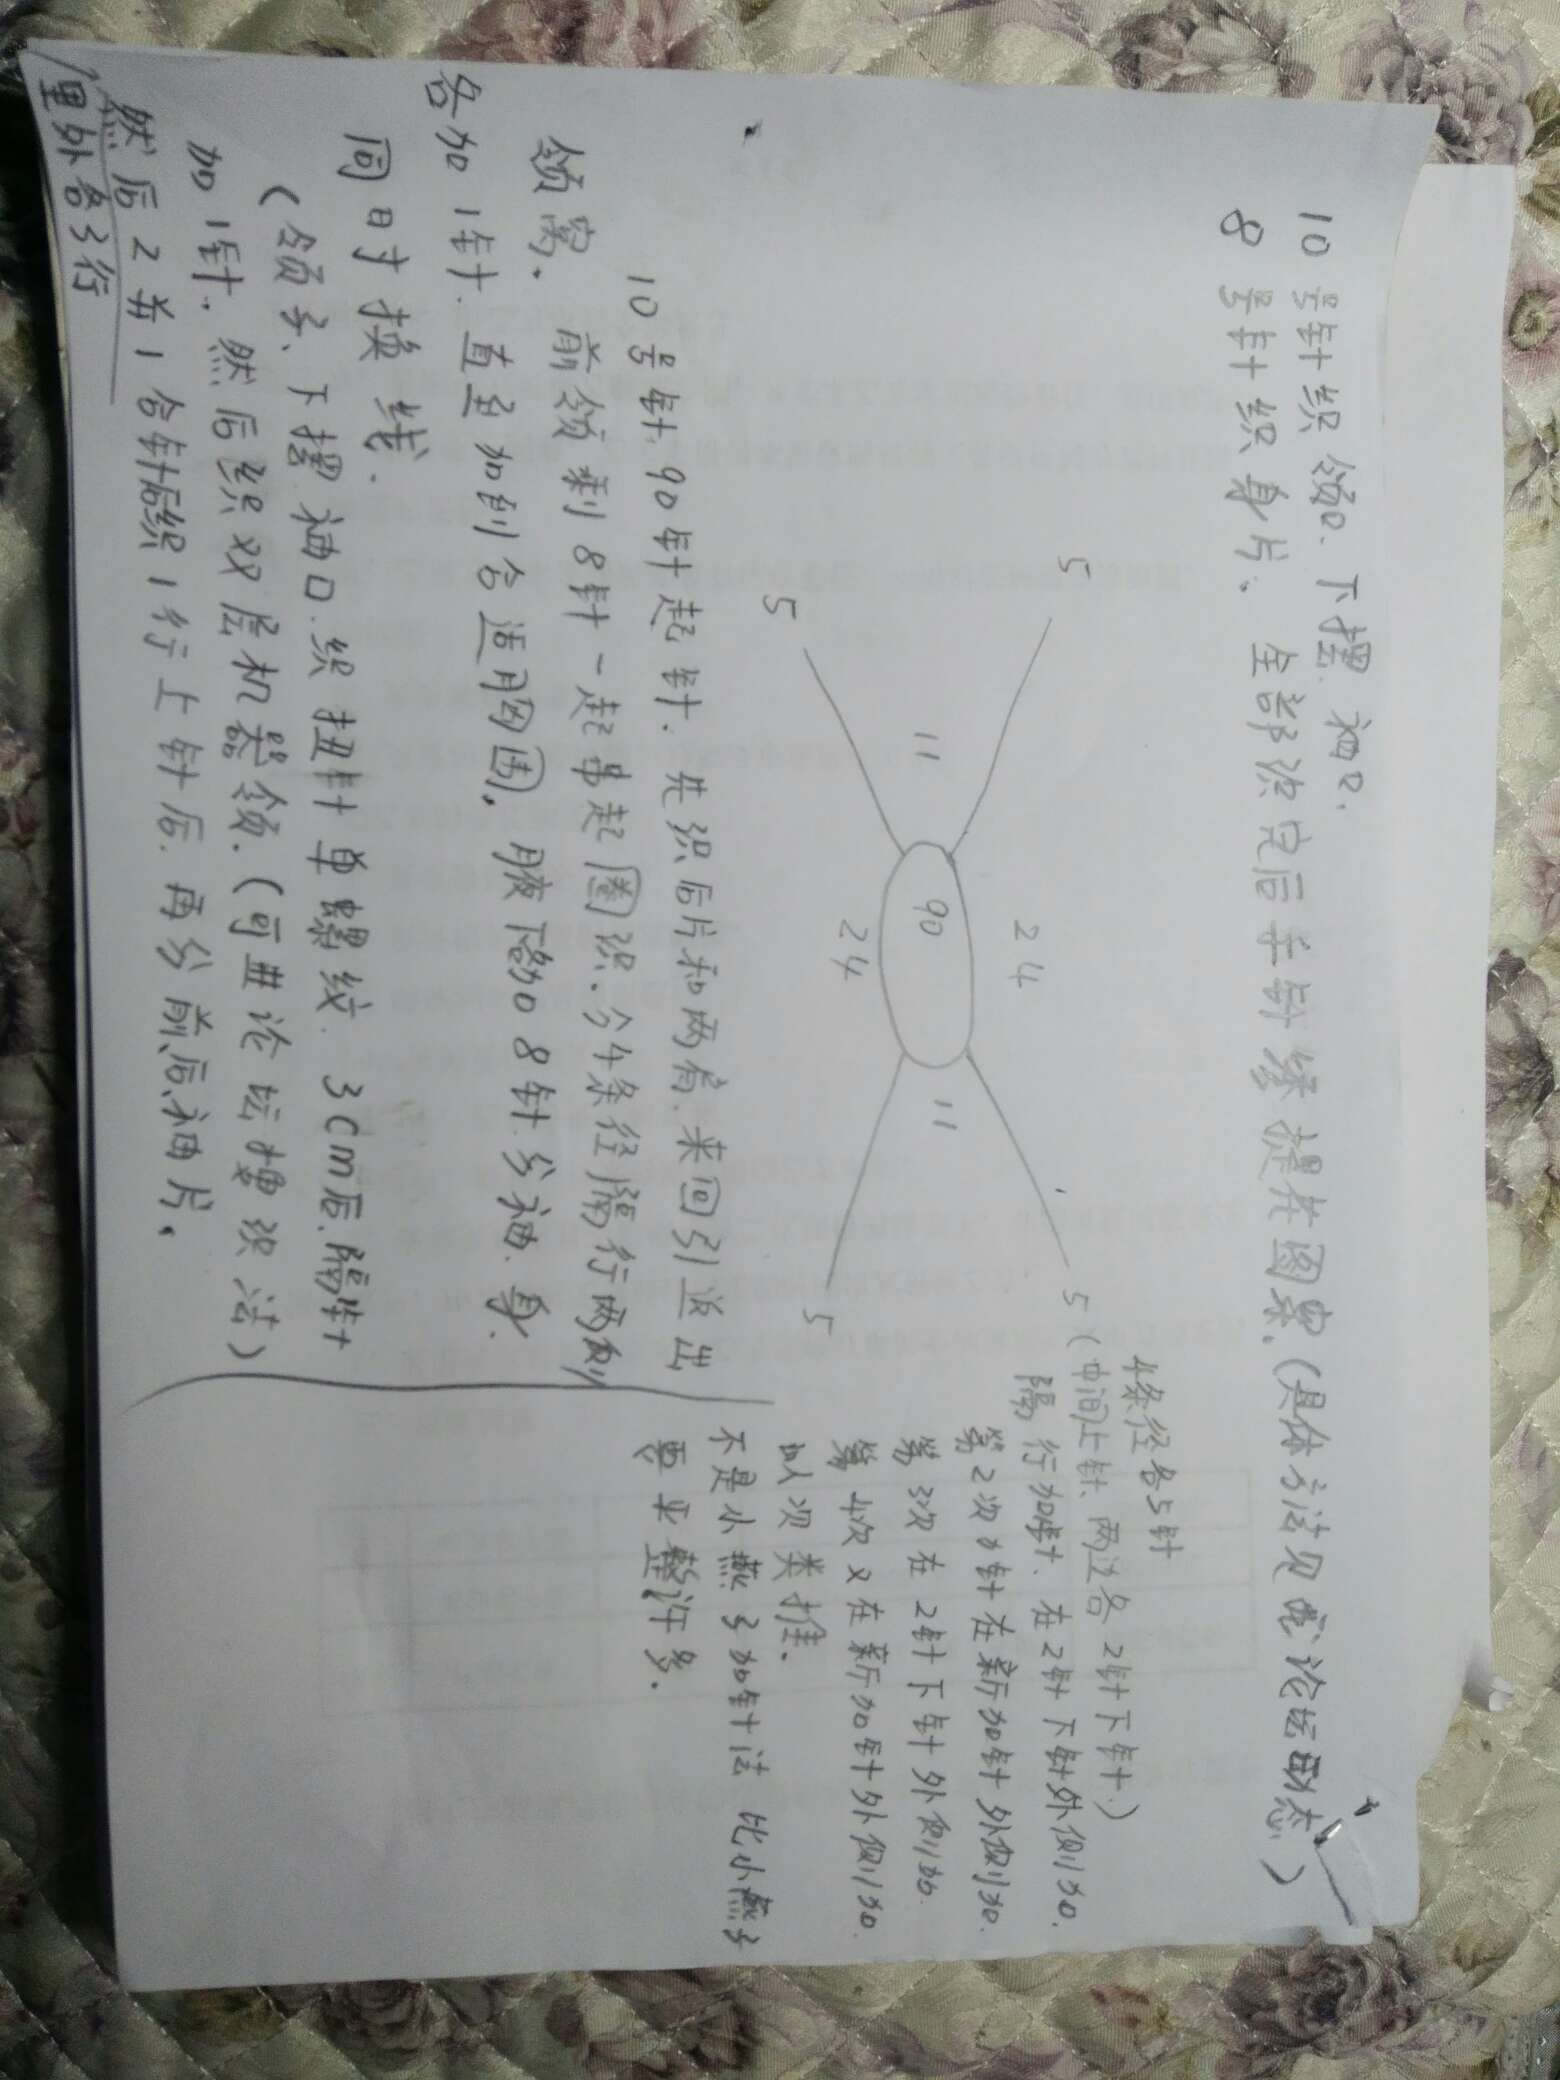 10号针织领口、下摆、袖口.
8号针织身片、全部织完后手针缘提花图案.(具体方法见 论坛动态)
5
5
11
24
90
24
11
5
5
4条径各5针
(中间上针、两边各2针下针.)
隔行加针、在2针下针外侧加.
第2次加针在新加针外侧加.
第3次在2针下针外侧加.
第4次又在新加针外侧加.
以次类推.
不是小燕子加针法 比小燕子
要平整许多.
10号针.90针起针.先织后片和两肩.来回引返出
领窝.前领剩8针一起带起圈织.分4条径隔行两侧
各加1针.直至加到合适胸围.腋下加8针.分袖.身.
同时换线.
(领子、下摆.袖口.织扭针单螺纹.3cm后.隔针
加1针.然后织双层机器领.(可进论坛搜织法)
然后2并1合针后织1行上针后.再分前、后、袖片.
里外各3行